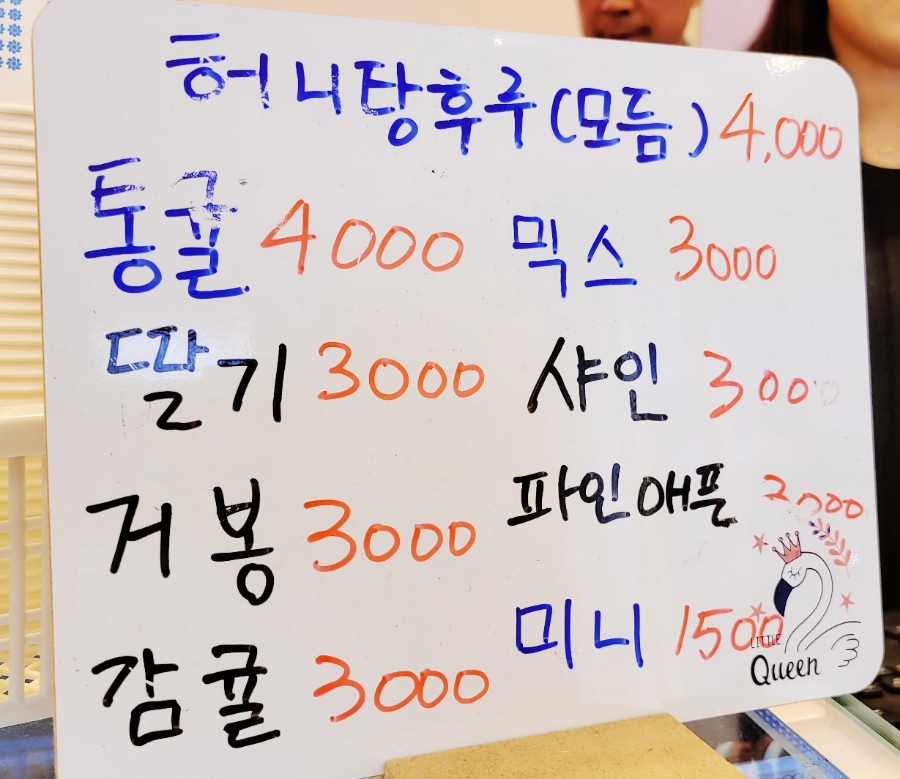 허니탕후루(모듬) 4,000
통귤 4000 믹스 3000
딸기 3000 샤인 3000
거봉 3000 파인애플 2000
감귤 3000 미니 1500
LITTLE
Queen